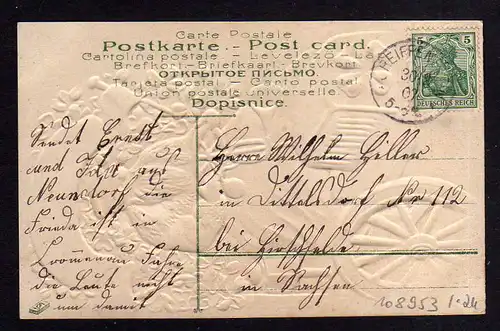 Carte Postale
Postkarte - Post card.
Cartolina postale - Levelező - Lap
Brefkort - Briefkaart - Brevkort
ОТКРЫТОЕ ПИСЬМО.
Tarjeta postal - Carto postal
Union postale universelle.
Dopisnice.
5 5
DEUTSCHES REICH
Sendet Ernst
und Ida aus
Neundorf die
Frieda ist in
die Leute nicht
um damit
Herrn Wilhelm Hiller
in Dittelsdorf Nr 112
bei Hirschfelde
in Sachsen
108953 1.24